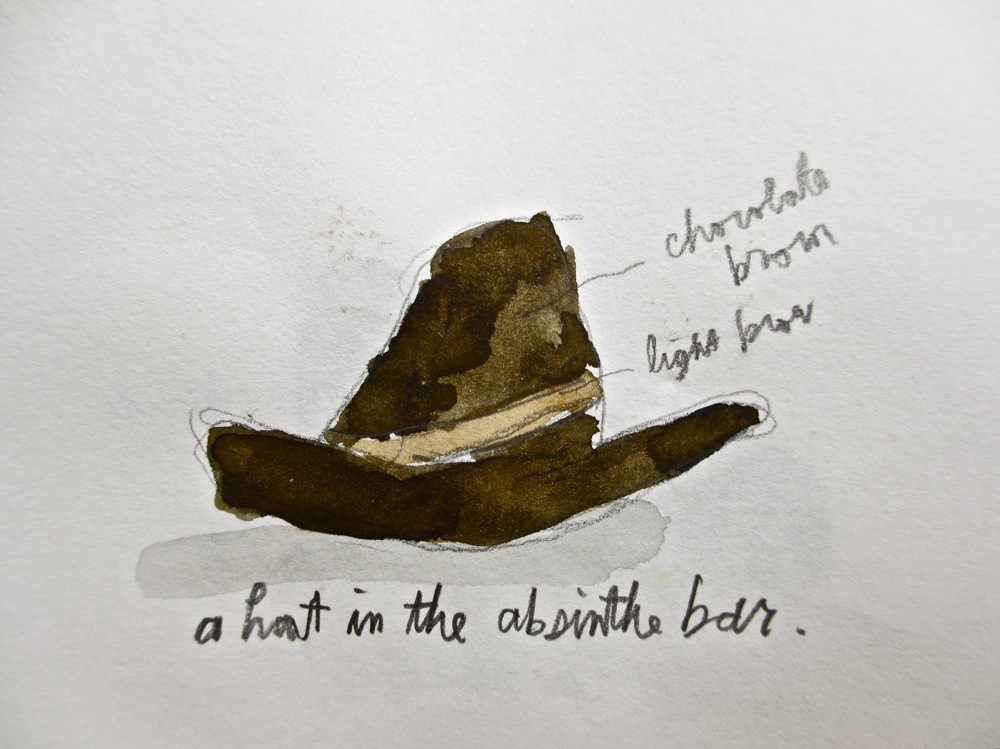 chocolate
brown
light brow
a hat in the absinthe bar.